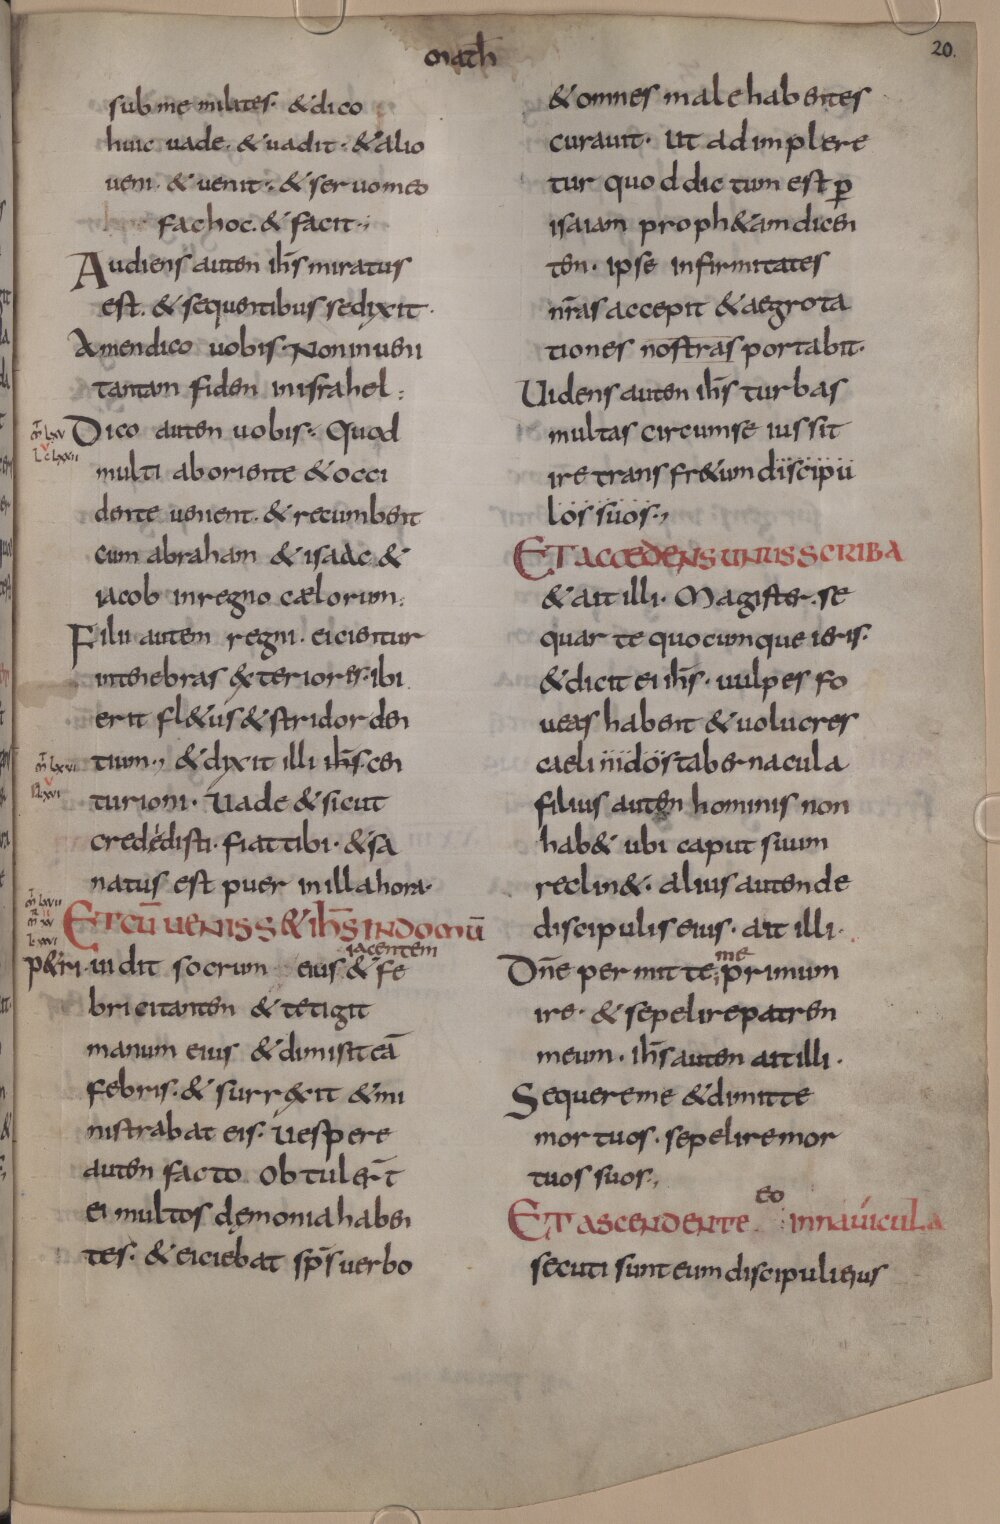 math
20.
sub me milites. & dico
huic uade. & uadit. & alio
ueni. & uenit. & seruo meo
fac hoc. & facit
Audiens autem ihs miratus
est. & sequentibus se dixit.
Amen dico uobis. Non inueni
tantam fidem in israhel.
Dico autem uobis. Quod
multi ab oriente & occi
dente uenient. & recumbent
cum abraham & isaac &
iacob in regno cælorum.
Filii autem regni. eicientur
in tenebras exteriores. ibi
erit fl&us & stridor den
tium., & dixit illi ihs cen
turioni. Uade & sicut
credédisti. fiat tibi. & sa
natus est puer in illa hora.
ET cū uenisset ihs in domū
p&ri. uidit socrum eius iacentem & fe
bricitantem & tetigit
manum eius & dimisit eā
febris. & surrexit & mi
nistrabat eis. Uespere
autem facto obtulert̄
ei multos dęmonia haben
tes. & eiciebat sps̄ uerbo
& omnes male habentes
curauit. ut adimplere
tur quod dictum est p
isaiam proph&am dicen
tem. ipse infirmitates
nr̄as accepit & aegrota
tiones nostras portabit.
Uidens autem ihs turbas
multas circum se iussit
ire trans fr&um discipu
los suos.,
ET accedens unus scriba
& ait illi. Magister. se
quar te quocumque ieris.
& dicit ei ihs. uulpes fo
ueas habent & uolucres
caeli nidos tabernacula
filius autem hominis non
hab& ubi caput suum
reclin&. alius autem de
discipulis eius. ait illi.
Dn̄e permitte me primum
ire. & sepelire patrem
meum. ihs autem ait illi.
Sequere me & dimitte
mortuos. sepelire mor
tuos suos.,
ET ascendente eo in nauicula
secuti sunt eum discipuli eius